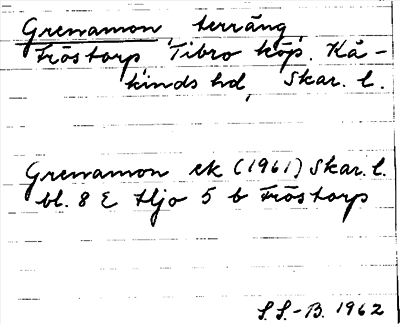 Grenamon, terräng,
Fröstorp Tibro köp. Kå-
kinds hd, Skar. l.
Grenamon ek (1961) Skar. l.
bl. 8 E Hjo 5 b Fröstorp
S. S.-B. 1962